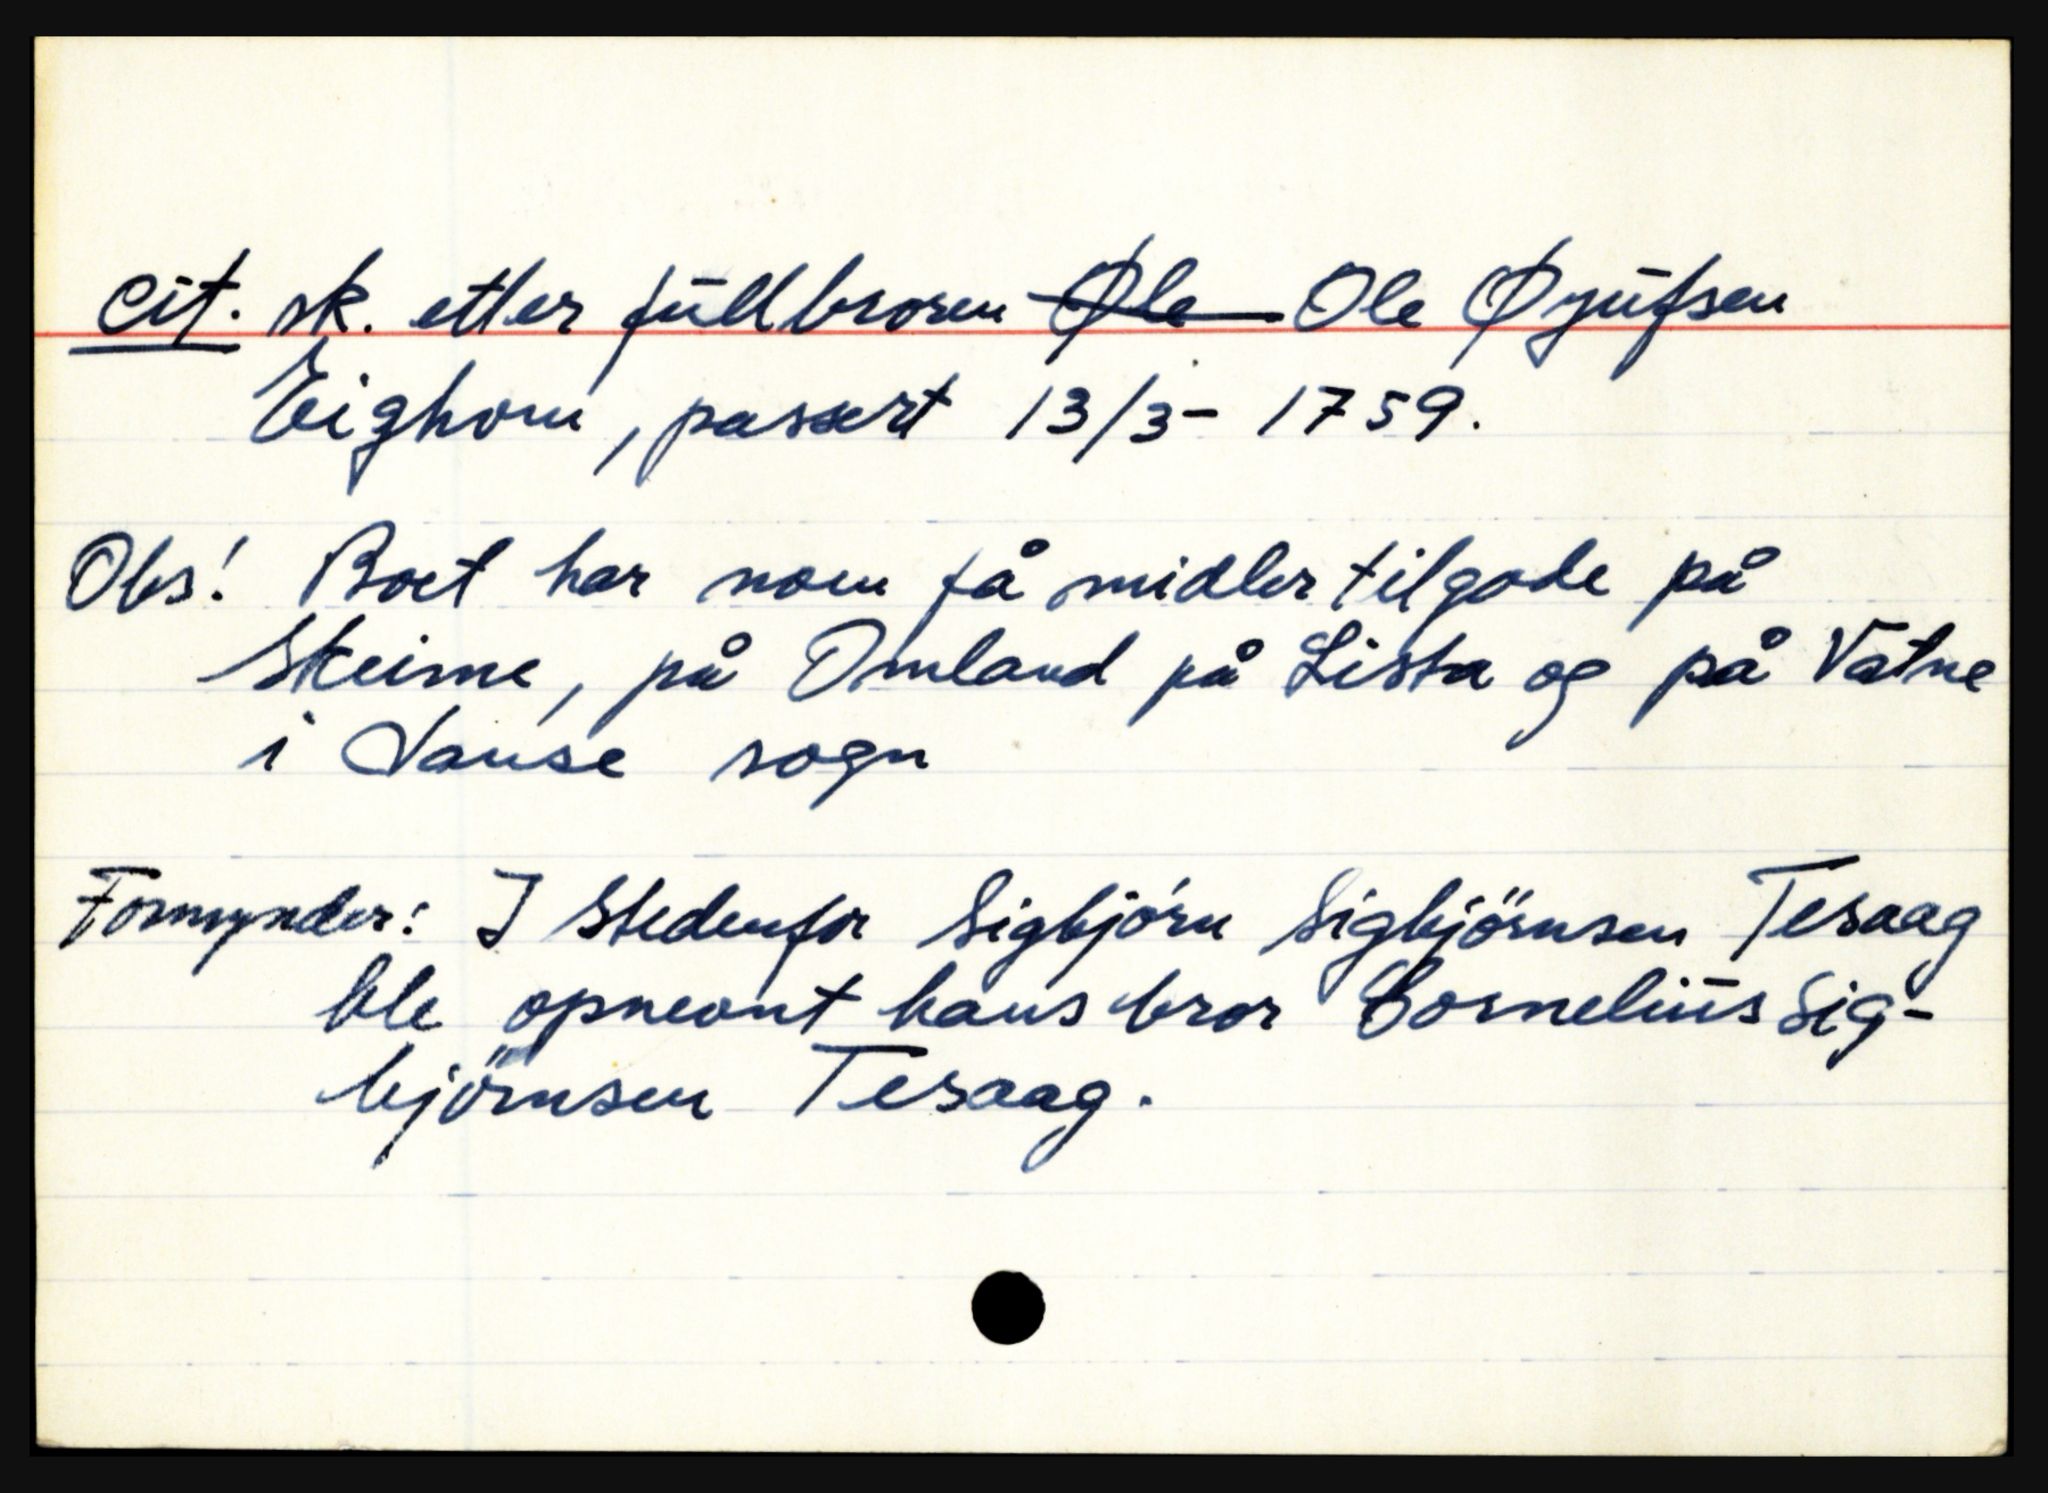 cit. sk. etter fullbroren ~~Øle~~ Ole Øyufsen
Eighom, passert 13/3- 1759.
Obs! Boet har noen få midler tilgode på
Skeime, på Omland på Lista og på Vatne
i Vanse sogn
Formynder: I stedenfor Sigbjørn Sigbjørnsen Tesaag
ble opnevnt hans bror Cornelius Sig-
bjørnsen Tesaag.